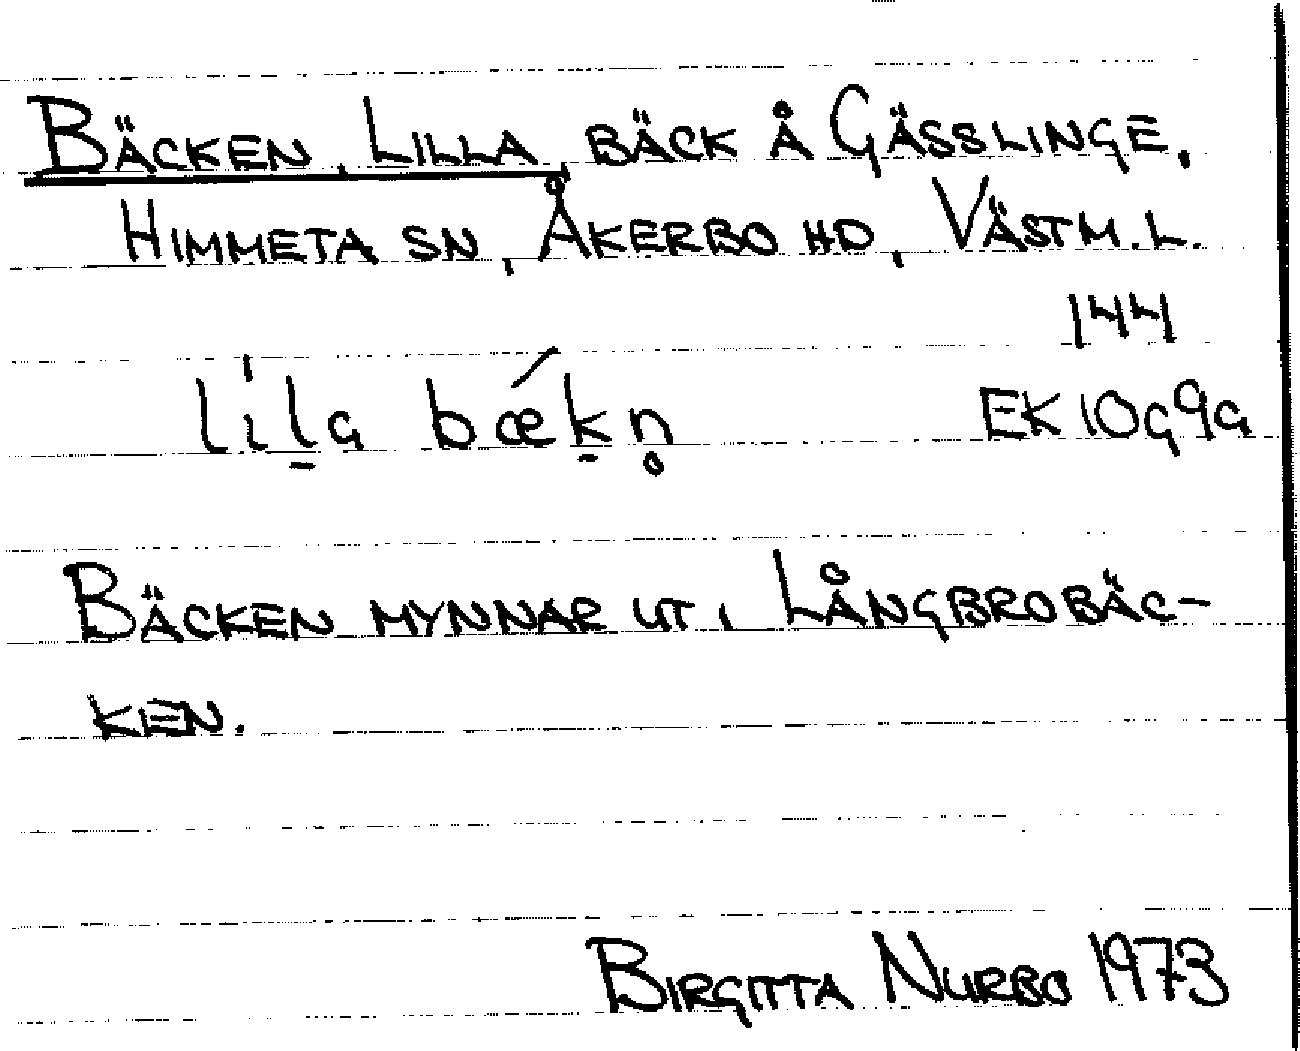 BÄCKEN, LILLA, BÄCK Å GÄSSLINGE,
HIMMETA SN, ÅKERBO HD, VÄSTM. L.
144
lìl̠a bǽk̠n̥ EK 10G9a
BÄCKEN MYNNAR UT I LÅNGBROBÄC-
KEN.
BIRGITTA NURBO 1973